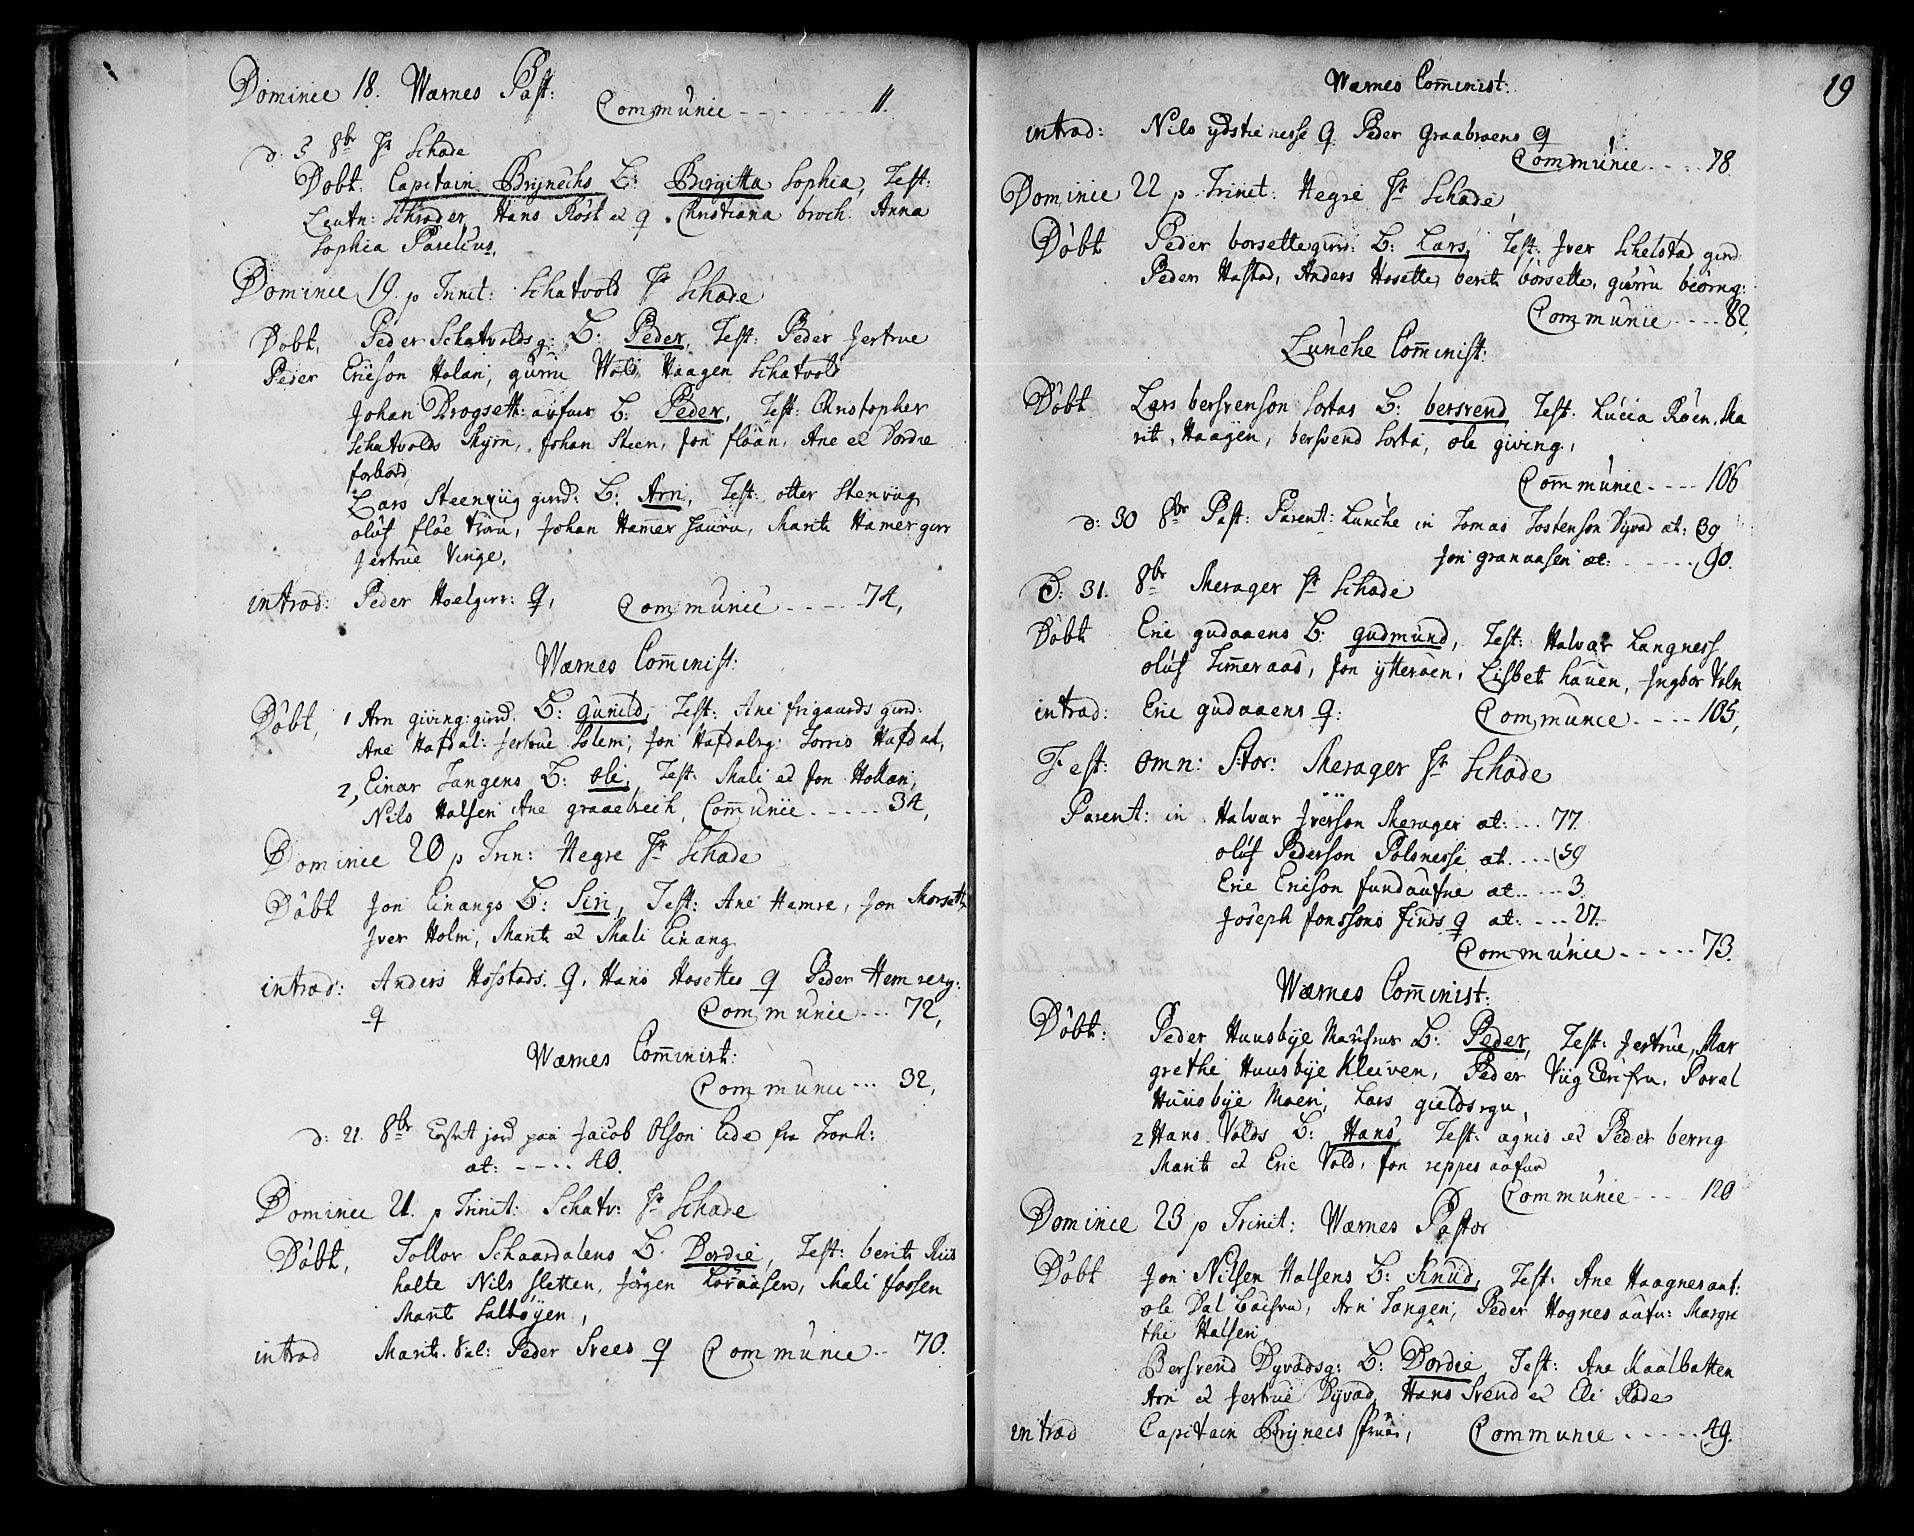 Dominic 18. Wærnes Past:
Communic - - - - - - - - 11.
d. 5 8br Hr Schade
Døbt. Capitain Brÿnechs B: Birgitta Sophia, Test:
Leutn: Schrøder, Hans Røst et q. Christiana broch. Anna
Sophia Parelius.
Dominic 19. p Trinit: Schatvold Hr Schade
Døbt, Peder Schatvoldsg: B: Peder, Test: Peder Jertrue
Peder Ericson Holan, gurru Wold Haagen Schatvold
Johan Drogseth: aufuer B: Peder, Test: Christopher
Schatvolds Myrn, Johan Steen, Jon floan, Ane et Dordie
forbord,
Lars Steenviig gird: B: Arn, Test: otter Stenvug,
oluf floe, Johan Hamer, Marit Hamer
Jertrue Vinge,
introd: Peder Hoelgirr: q, Communic - - - - - 74,
Wærnes Com̄inist:
Døbt, 1 Arn giving: gird. B: gunild, Test: Ane frigaards gird:
Ane Hafdal: Jertrue Solem, Jon Hafdalsg: Torris Hafdal,
2, Einar Tangens B: ole, Test: Mali et Jon Hollan,
Nils Halsen Ane graaelbech, Com̄unic - - - - - 34,
Dominic 20 p Trin: Hegre Hr Schade
Døbt Jon Einangs B: Siri, Test: Ane Hemre, Jon Morseth,
Iver Holm, Marit et Mali Einang
introd: Anders Hofstads. q, Hans Hosettes q Peder Hemresg:
q Communic - - - 72,
Wærnes Com̄inist:
Communic - - - 32,
d: 21. 8br Castet jord paa Jacob Olson Lide fra Tronh:
æt: - - - - 40.
Dominic 21. p Trinit: Schatv: Hr Schade
Døbt, Tollor Schaardalens B. Dordie, Test: berit Mid
halte Nils Sletten, Jørgen, Mali fossen
Marit Salbøyen,
introd Marit. Val: Peder Srees q Communic - - 70.
19
Wærnes Com̄inist:
introd: Nils ydstienesse q Peder graabroens q
Communic - - - - 78
Dominic 22 p Trinit: Hegre Hr Schade
Døbt Peder borsettegird: B: Lars, Test: Jver Schelstad gird
Peder Hastad, Anders Hosette, berit borsette, gurru biörng:
Communic - - - - 82
Lunche Com̄inist:
Døbt Lars bersvenson Sortas B: bersvend Test: Lucia Røen, Ma
rit, Haagen, bersvend Sorta, ole giving,
Com̄unic - - - - 106
d: 30 8br Past: Parent: Lunche in Tomas Jostenson Dyvad æt: 39
Jon granaasen æt: - - - - - - 90.
D: 31. 8br Merager Hr Schade
Døbt Eric gudaaens B: gudmund, Test: Halvar Langness
oluf Timeraas, Jon ytteraen, Lisbet hauen, Ingbor Voln
introd: Eric gudaaens q: Communic - - - - - 105,
Fest: omn: Stor: Merager Hr Schade
Parent: in Halvar Jverson Merager æt: - - - 77.
oluf Pederson Polsnesse æt - - - - 59
Eric Ericson fundaufne æt. - - - - 3
Joseph Jonssons Finds q æt: - - - 27.
Communic - - - - - 73.
Wærnes Com̄inist:
Døbt: Peder Huusbÿe B: Peder, Test: Jertrue, Mar
grethe Huusbÿe Kleiven, Peder Viig, Porel
Huusbÿe Moen, Lars,
2 Hans Volds B: Hans, Test: agnis et Peder berrig
Marit et Eric Vold, Jon reppes aufur
Communic - - - - 120
Dominic 23 p Trinit: Wærnes Pastor
Døbt Jon Nilsen Halsens B: Knud, Test: Ane Haagnes aut:
ole Dal, Arn Tangen, Peder Hognes aufu: Margre
the Halsen,
Bersvend Dyvadsg: B: Dordie, Test: Ane Maalbatten
Arn et Jertrue Dyvad, Hans Svend et Eli Røde
introd Capitain Brÿnecs fruæ, Communic - - - - - 49.